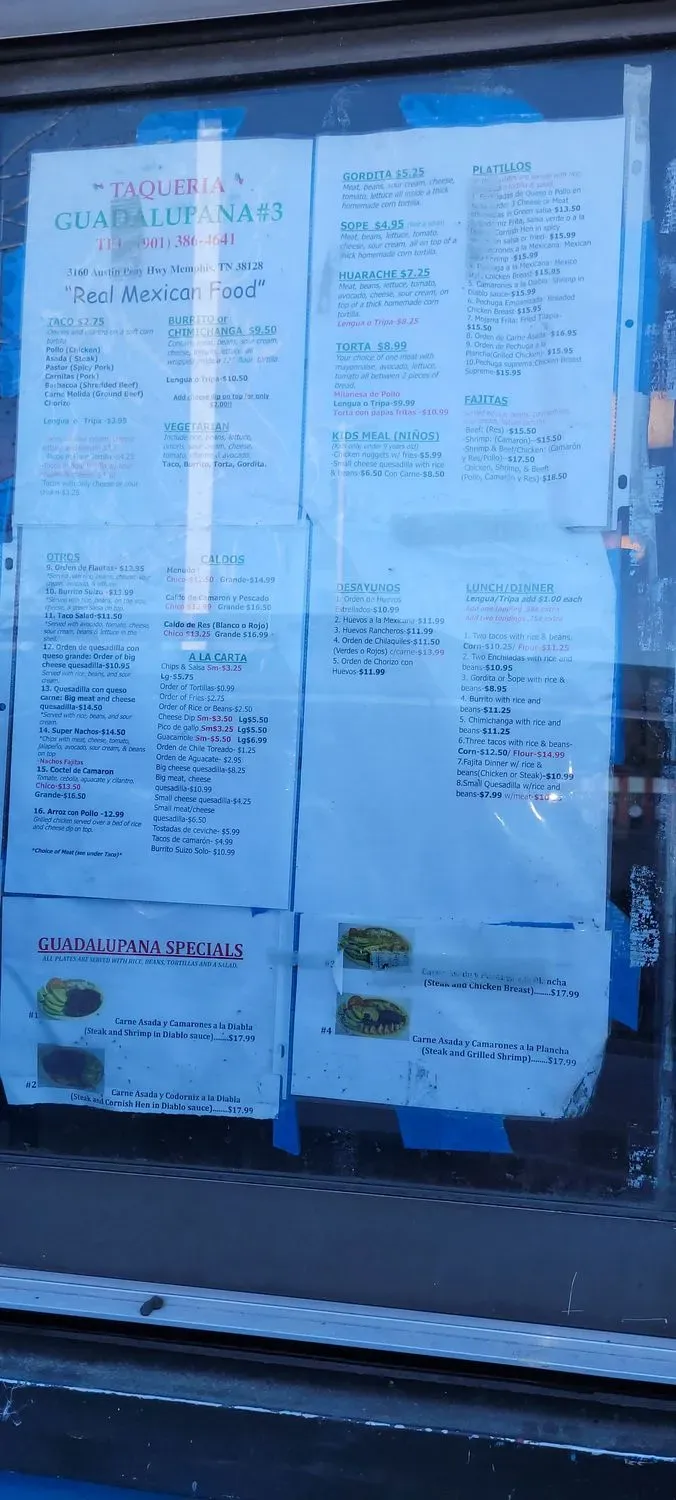 TAQUERIA
GUADALUPANA#3
TEL (901) 386-4641
3160 Austin Peay Hwy Memphis, TN 38128
"Real Mexican Food"
TACO $2.75
tortilla
Pollo (Chicken)
Asada (Steak)
Pastor (Spicy Pork)
Carnitas (Pork)
Barbacoa (Shredded Beef)
Carne Molida (Ground Beef)
Chorizo
Lengua o Tripa -$3.95
BURRITO or
CHIMICHANGA $9.50
Lengua o Tripa -$10.50
Add cheese dip on top for only
$2.00!!
VEGETARIAN
Include rice, beans, lettuce,
onions, sour cream, cheese,
tomato, & avocado.
Taco, Burrito, Torta, Gordita.
GORDITA $5.25
Meat, beans, sour cream, cheese,
tomato, lettuce all inside a thick
homemade corn tortilla.
SOPE $4.95
Meat, beans, lettuce, tomato,
cheese, sour cream, all on top of a
thick homemade corn tortilla.
HUARACHE $7.25
Meat, beans, lettuce, tomato,
avocado, cheese, sour cream, on
top of a thick homemade corn
tortilla.
Lengua o Tripa-$8.25
TORTA $8.99
Your choice of one meat with
mayonnaise, avocado, lettuce,
tomato all between 2 pieces of
bread.
Milanesa de Pollo
Lengua o Tripa-$9.99
Torta con papas fritas -$10.99
KIDS MEAL (NIÑOS)
(Kids only under 9 years old)
-Chicken nuggets w/ fries-$5.99
-Small cheese quesadilla with rice
& beans-$6.50 Con Carne-$8.50
PLATILLOS
de Queso o Pollo en
3 Cheese or Meat
in Green salsa $13.50
Frito, salsa verde o a la
Cornish Hen in spicy
salsa or fried- $15.99
a la Mexicana: Mexican
-$15.99
a la Mexicana: Mexico
Chicken Breast-$15.95
5. Camarones a la Diabla- Shrimp in
Diablo sauce-$15.99
6. Pechuga Empanizada: Breaded
Chicken Breast $15.95
7. Mojarra Frita: Fried Tilapia-
$15.50
8. Orden de Carne Asada- $16.95
9. Orden de Pechuga a la
Plancha(Grilled Chicken)- $15.95
10.Pechuga suprema:Chicken Breast
Supreme-$15.95
FAJITAS
Beef: (Res) -$15.50
-Shrimp: (Camaron)--$15.50
-Shrimp & Beef/Chicken: (Camarón
y Res/Pollo)- $17.50
Chicken, Shrimp, & Beef
(Pollo, Camarón y Res) $18.50
OTROS
9. Orden de Flautas- $12.95
10. Burrito Suizo -$13.99
11. Taco Salad-$11.50
*Served with avocado, tomato, cheese,
sour cream, beans & lettuce in the
shell.
12. Orden de quesadilla con
queso grande: Order of big
cheese quesadilla-$10.95
Served with rice, beans, and sour
cream.
13. Quesadilla con queso
carne: Big meat and cheese
quesadilla-$14.50
*Served with rice, beans, and sour
cream.
14. Super Nachos-$14.50
*Chips with meat, cheese, tomato,
jalapeño, avocado, sour cream, & beans
on top
-Nachos Fajitas
15. Coctel de Camaron
Tomate, cebolla, aguacate y cilantro.
Chico-$13.50
Grande-$16.50
16. Arroz con Pollo -12.99
Grilled chicken served over a bed of rice
and cheese dip on top.
*Choice of Meat (see under Taco)*
CALDOS
Menudo
Chico-$12.50 Grande-$14.99
Caldo de Camaron y Pescado
Chico $13.99 Grande $16.50
Caldo de Res (Blanco o Rojo)
Chico $13.25 Grande $16.99
A LA CARTA
Chips & Salsa Sm-$3.25
Lg-$5.75
Order of Tortillas-$0.99
Order of Fries-$2.75
Order of Rice or Beans-$2.50
Cheese Dip Sm-$3.50 Lg$5.50
Pico de gallo Sm$3.25 Lg$5.50
Guacamole Sm-$5.50 Lg$6.99
Orden de Chile Toreado- $1.25
Orden de Aguacate- $2.95
Big cheese quesadilla-$8.25
Big meat, cheese
quesadilla-$10.99
Small cheese quesadilla-$4.25
Small meat/cheese
quesadilla-$6.50
Tostadas de ceviche- $5.99
Tacos de camarón- $4.99
Burrito Suizo Solo- $10.99
DESAYUNOS
1. Orden de Huevos
Estrellados-$10.99
2. Huevos a la Mexicana $11.99
3. Huevos Rancheros-$11.99
4. Orden de Chilaquiles-$11.50
(Verdes o Rojos) c/carne-$13.99
5. Orden de Chorizo con
Huevos-$11.99
LUNCH/DINNER
Lengua/Tripa add $1.00 each
1. Two tacos with rice & beans.
Corn-$10.25/ Flour-$11.25
2. Two Enchiladas with rice and
beans-$10.95
3. Gordita or Sope with rice &
beans-$8.95
4. Burrito with rice and
beans-$11.25
5. Chimichanga with rice and
beans-$11.25
6.Three tacos with rice & beans-
Corn-$12.50/ Flour-$14.99
7.Fajita Dinner w/ rice &
beans(Chicken or Steak)-$10.99
8.Small Quesadilla w/rice and
beans-$7.99 w/meat-
GUADALUPANA SPECIALS
ALL PLATES ARE SERVED WITH RICE, BEANS, TORTILLAS AND A SALAD.
#1
Carne Asada y Camarones a la Diabla
(Steak and Shrimp in Diablo sauce)......$17.99
#2
Carne Asada y Codorniz a la Diabla
(Steak and Cornish Hen in Diablo sauce)......$17.99
Plancha
(Steak and Chicken Breast)......$17.99
#4
Carne Asada y Camarones a la Plancha
(Steak and Grilled Shrimp)........$17.99